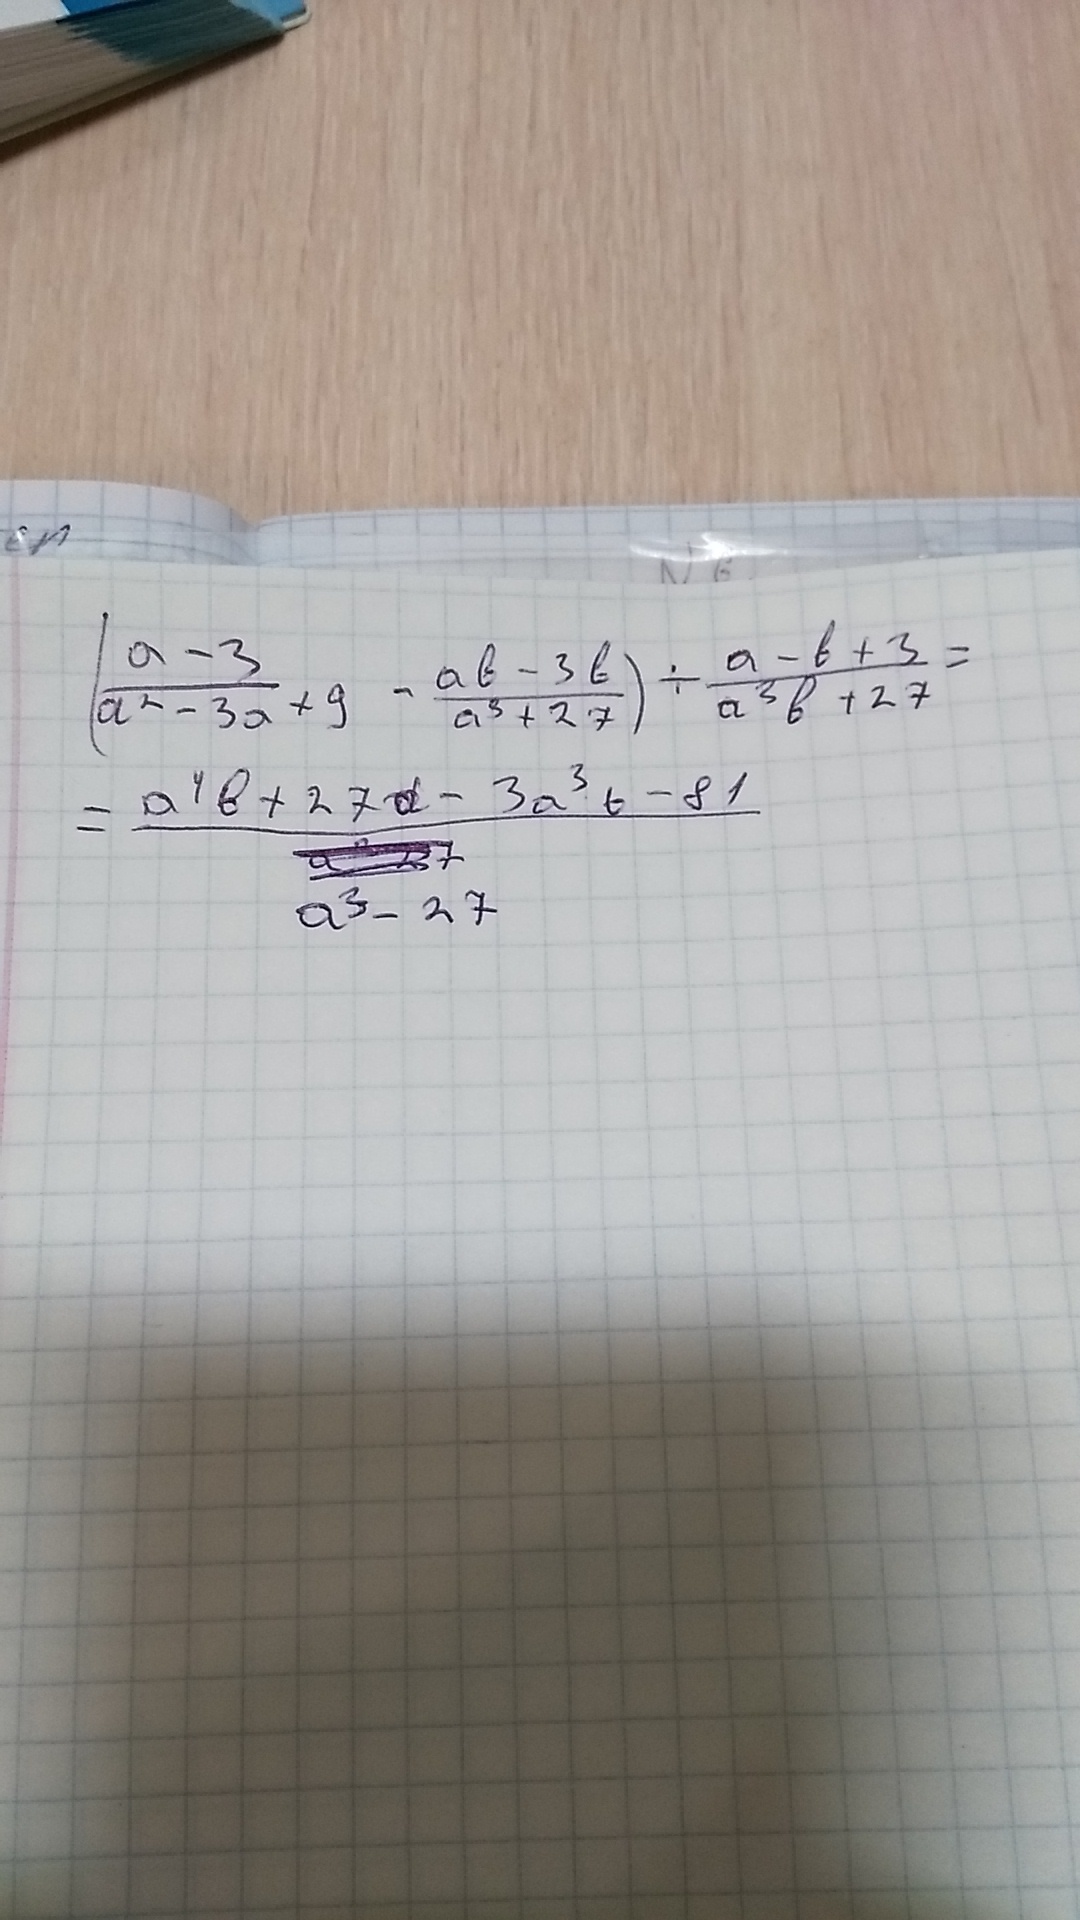 ел
N 6
(a-3/a²-3a+9 - ab-3b/a³+27) ÷ a-b+3/a³b+27 =
= a⁴b+27a-3a³b-81/a³-27